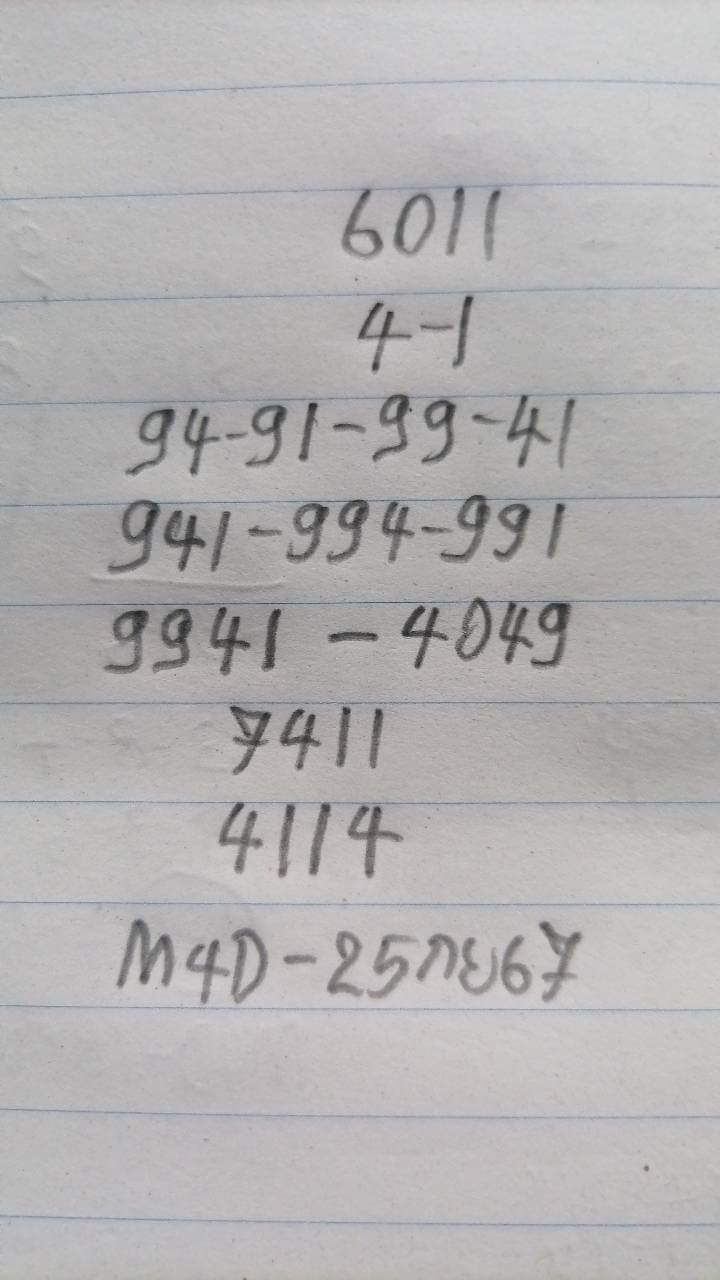 6011
4-1
94-91-99-41
941-994-991
9941-4049
7411
4114
M4D-25กย67